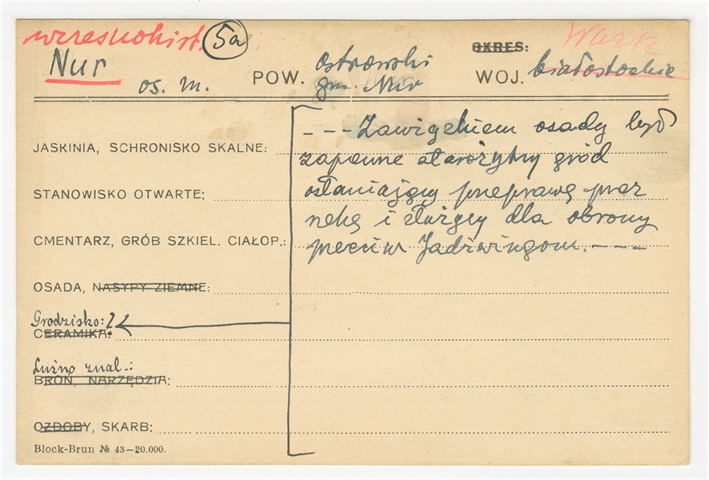 wczesnohist. 5a
Nur
os. m.
POW. Ostrowski
gm. Nur
OKRES: Warsz
WOJ. białostockie
JASKINIA, SCHRONISKO SKALNE:
STANOWISKO OTWARTE:
CMENTARZ, GRÓB SZKIEL. CIAŁOP.:
OSADA, NASYPY ZIEMNE:
Grodzisko: ?
CERAMIKA:
Luźno znal.:
BROŃ, NARZĘDZIA:
OZDOBY, SKARB:
Block-Brun № 43—20.000.
- - - Zawiązkiem osady był
zapewne starożytny gród
osłaniający przeprawę przez
rzekę i służący dla obrony
przeciw Jadźwingom. - - -